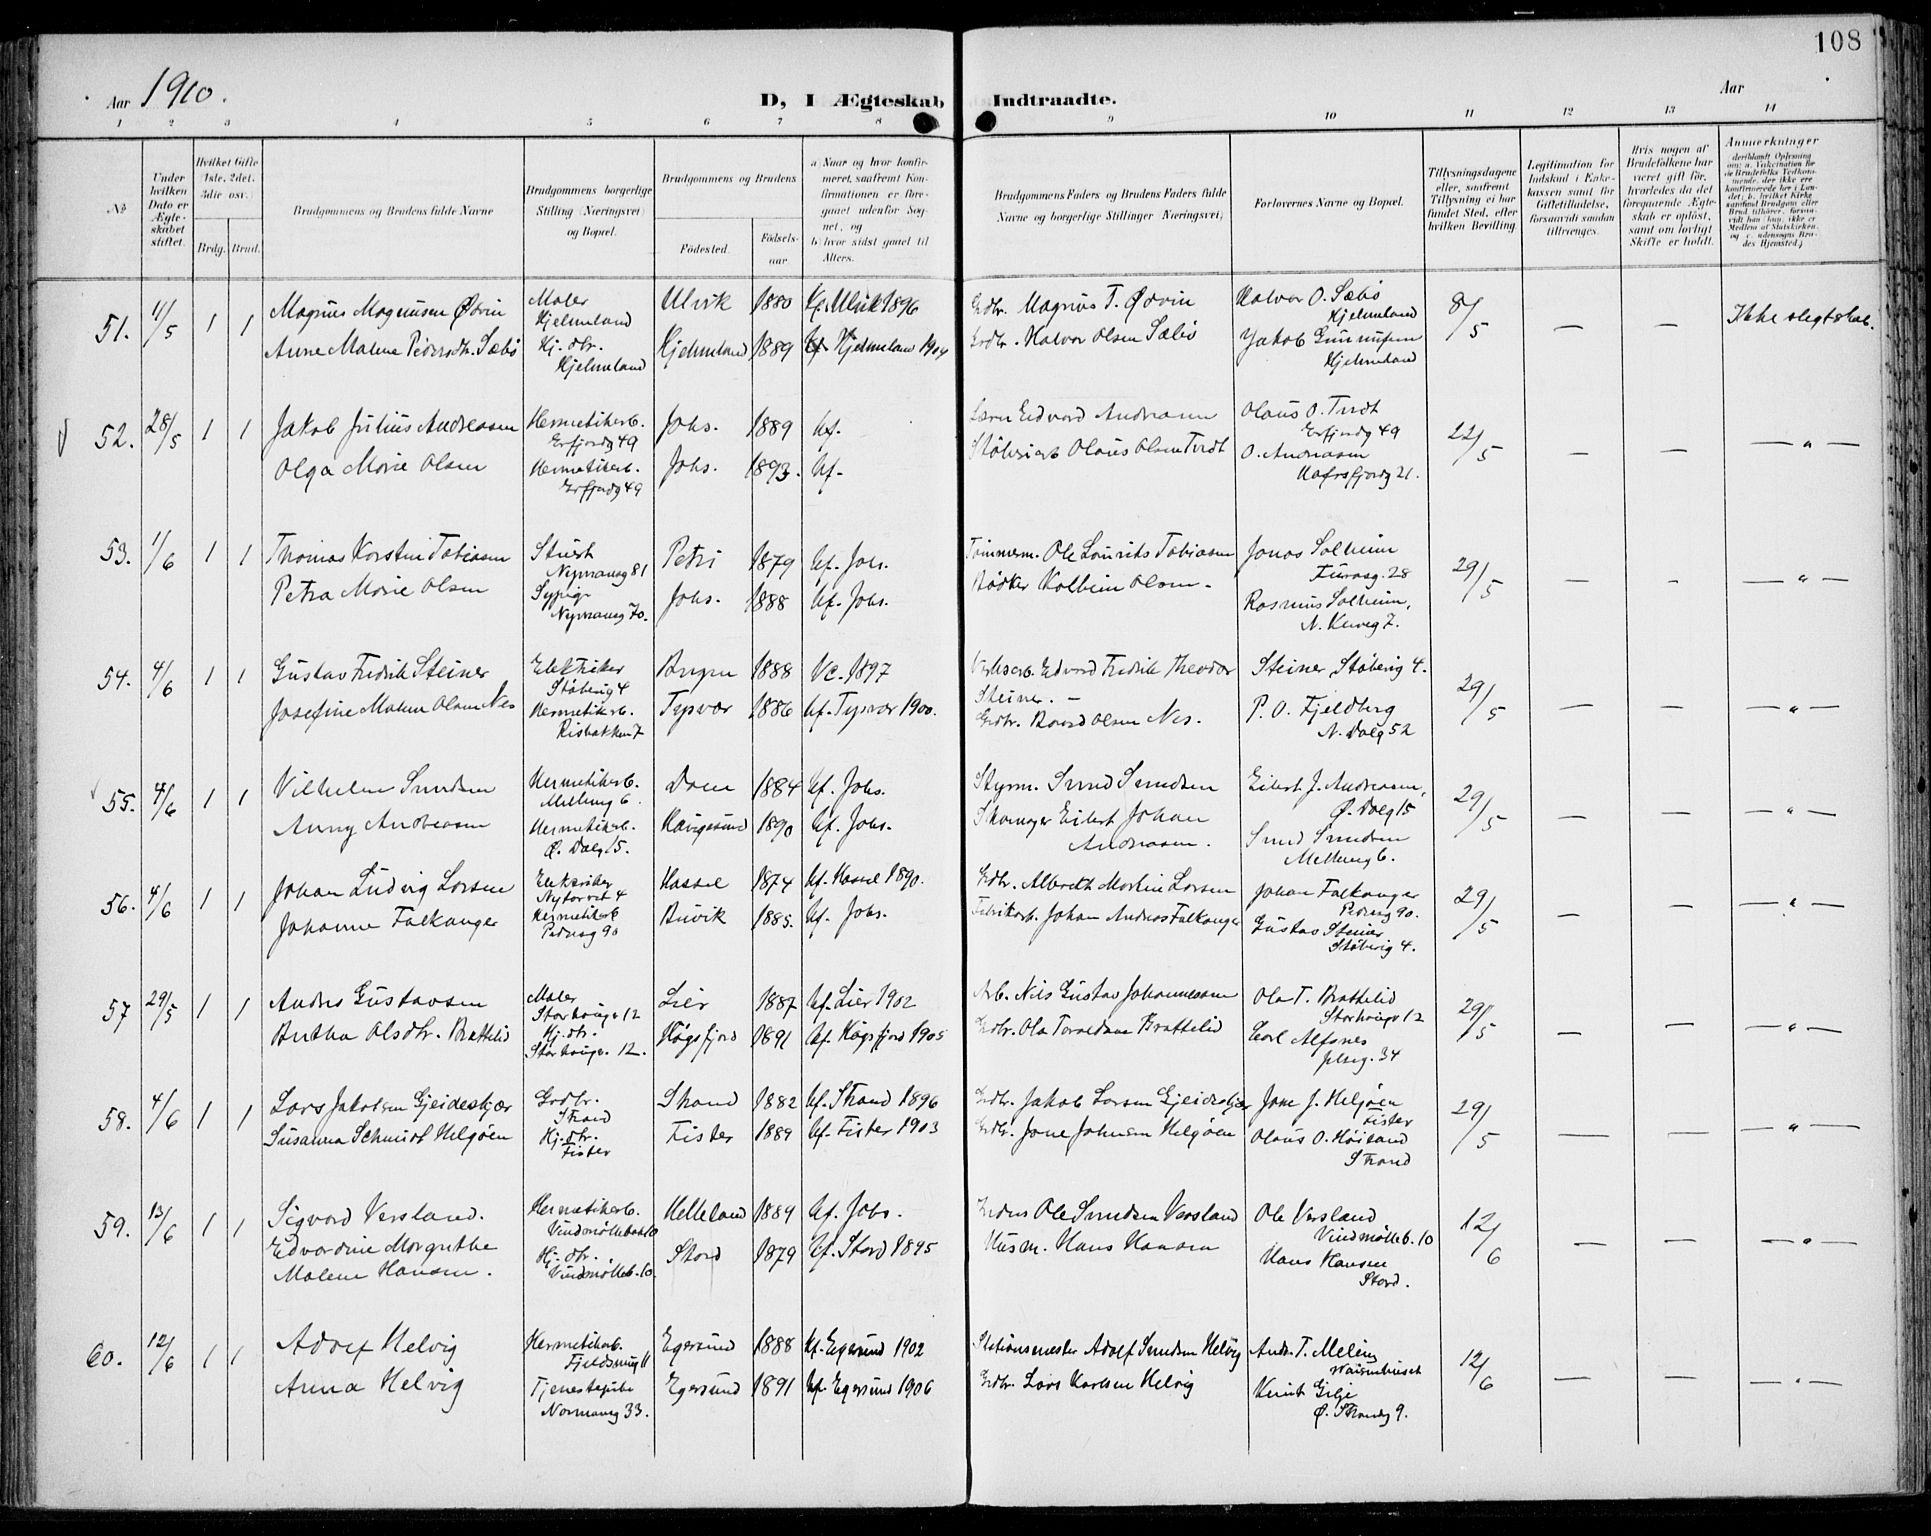 108
Aar 1910.
D, I Ægteskab Indtraadte.
Aar
1 2 3 4 5 6 7 8 9 10 11 12 13 14
№
Under hvilken Dato er Ægteskabet stiftet.
Hvilket Gifte 1ste, 2det, 3die osv.
Brdg. Brud.
Brudgommens og Brudens fulde Navne
Brudgommens borgerlige Stilling (Næringsvei) og Bopæl.
Brudgommens og Brudens
Fødested.
Fødselsaar.
a) Naar og hvor konfirmeret, saafremt Konfirmationen er foregaaet udenfor Sognet, og
b) hvor sidst gaaet til Alters.
Brudgommens Faders og Brudens Faders fulde Navne og borgerlige Stillinger (Næringsvei)
Forlovernes Navne og Bopæl.
Tillysningsdagene eller, saafremt Tillysning ei har fundet Sted, efter hvilken Bevilling.
Legitimation for Indskud i Enkekassen samt for Giftetilladelse, forsaavidt saadan tiltrænges.
Hvis nogen af Brudefolkene har været gift før, hvorledes da det foregaaende Ægteskab er opløst, samt om lovligt Skifte er holdt.
Anmerkninger
51. 11/5 1 1 Magnus Magnussen Ødvin Maler Hjelmeland Ulvik 1880 Kf. Ulvik 1896 Grdbr. Magnus T. Ødvin Halvor O. Sæbø Hjelmeland 8/5 — — Ikke slegtskab.
Anne Malene Pedersdtr. Sæbø Hj. dtr. Hjelmeland Hjelmeland 1889 Kf. Hjelmeland 1904 Grdbr. Halvor Olsen Sæbø Jakob Gunnufsen Hjelmeland
52. 28/5 1 1 Jakob Julius Andreasen Hermetikarb. Erfjordg 49 Johs. 1889 kf. Edvard Andreasen Olaus O. Tvedt Erfjordg 49 22/5 — — — " —
Olga Marie Olsen Hermetikarb. Erfjordg 49 Johs. 1893. kf. Støberiarb. Olaus Olsen Tvedt O. Andreasen Hafrsfjordg 21.
53. 1/6 1 1 Thomas Korstin Tobiasen Stuert Nymansg 81 Petri 1879 kf. Johs. Tømmerm. Ole Lauritz Tobiasen Jonas Solheim Furasg. 28 29/5 — — — " —
Petra Marie Olsen Sypige Nymansg 70. Johs. 1888 kf. Johs. Bødker Kolbein Olsen Rasmus Solheim, N. Kirveg 7.
54. 4/6 1 1 Gustav Fredrik Steiner Elektriker Støberig 4 Bergen 1888 Vc. 1897 Verksarb. Edvard Fredrik Theodor Steiner. — Steiner Støberig 4. 29/5 — — — " —
Josefine Malene Olsen Nes Hermetikarb. Risbakken 7 Tysvær 1886 kf. Tysvær 1900. Grdbr. Baard Olsen Nes. P. O. Fjeldberg N. Dalg 52
55. 4/6 1 1 Vilhelm Smedsen Hermetikarb. Mellemg 6. Dom 1884 kf. Johs. Styrm. Smed Smedsen Eilert J. Andreasen, Ø. Dalg 15 29/5 — — — " —
Anny Andreasen Hermetikarb. Ø. Dalg 15. Haugesund 1890 kf. Johs. Skomager Eilert Johan Andreasen. Smed Smedsen Mellemg 6.
56. 4/6 1 1 Johan Ludvig Larsen Elektriker Nytorvet 4 Hassel 1874 kf. Hassel 1890. Grdbr. Albreth Martin Larsen Johan Falkanger Pedersg 90. 29/5 — — — " —
Johanne Falkanger Hermetikarb Pedersg 90 Buvik 1885. kf. Johs. Fabrikarb. Johan Andreas Falkanger Gustav Steiner Støberig 4.
57 29/5 1 1 Anders Gustavsen Maler Storhougv 12 Lier 1887 kf. Lier 1902 Arb. Nils Gustav Johannessen Ola T. Brattelid Storhougv 12 29/5 — — — " —
Bertha Olsdtr. Brattelid Hj. dtr. Storhougv. 12. Høgsfjord 1891 kf. Høgsfjord 1905 Grdbr. Ola Toraldsen Brattelid Carl Alfsnes 34
58. 4/6 1 1 Lars Jakobsen Gjeideskjær Grdbr. Strand Strand 1882 kf. Strand 1896 Grdbr. Jakob Larsen Gjeideskjær Jone J. Helgøen Fister 29/5 — — — " —
Susanna Schmidt Helgøen Hj. dtr. Fister Fister 1889 kf. Fister 1903 Grdbr. Jone Johnsen Helgøen Olaus O. Høiland Strand
59. 13/6 1 1 Sigvard Versland. Hermetikarb. Vindmøllebak 10 Helleland 1889 kf. Johs. Ole Smedsen Versland Ole Versland Vindmølleb. 10 12/6 — — — " —
Edvardine Margrethe Malene Hansen. Hj. dtr. Vindmølleb. 10. Stord 1879 kf. Stord 1895 Husm. Hans Hansen Hans Hansen Stord.
60. 12/6 1 1 Adolf Helvig Hermetikarb. Fjeldsmug 11 Egersund 1888 kf. Egersund 1902 Stationsmester Adolf Smedsen Helvig Andr. T. Meling Waisenhuset 12/6 — — — " —
Anna Helvig Tjenestepike Normansg 33. Egersund 1891 kf. Egersund 1906 Grdbr. Lars Karlsen Helvig Knut Gilje Ø. Strandg 9.